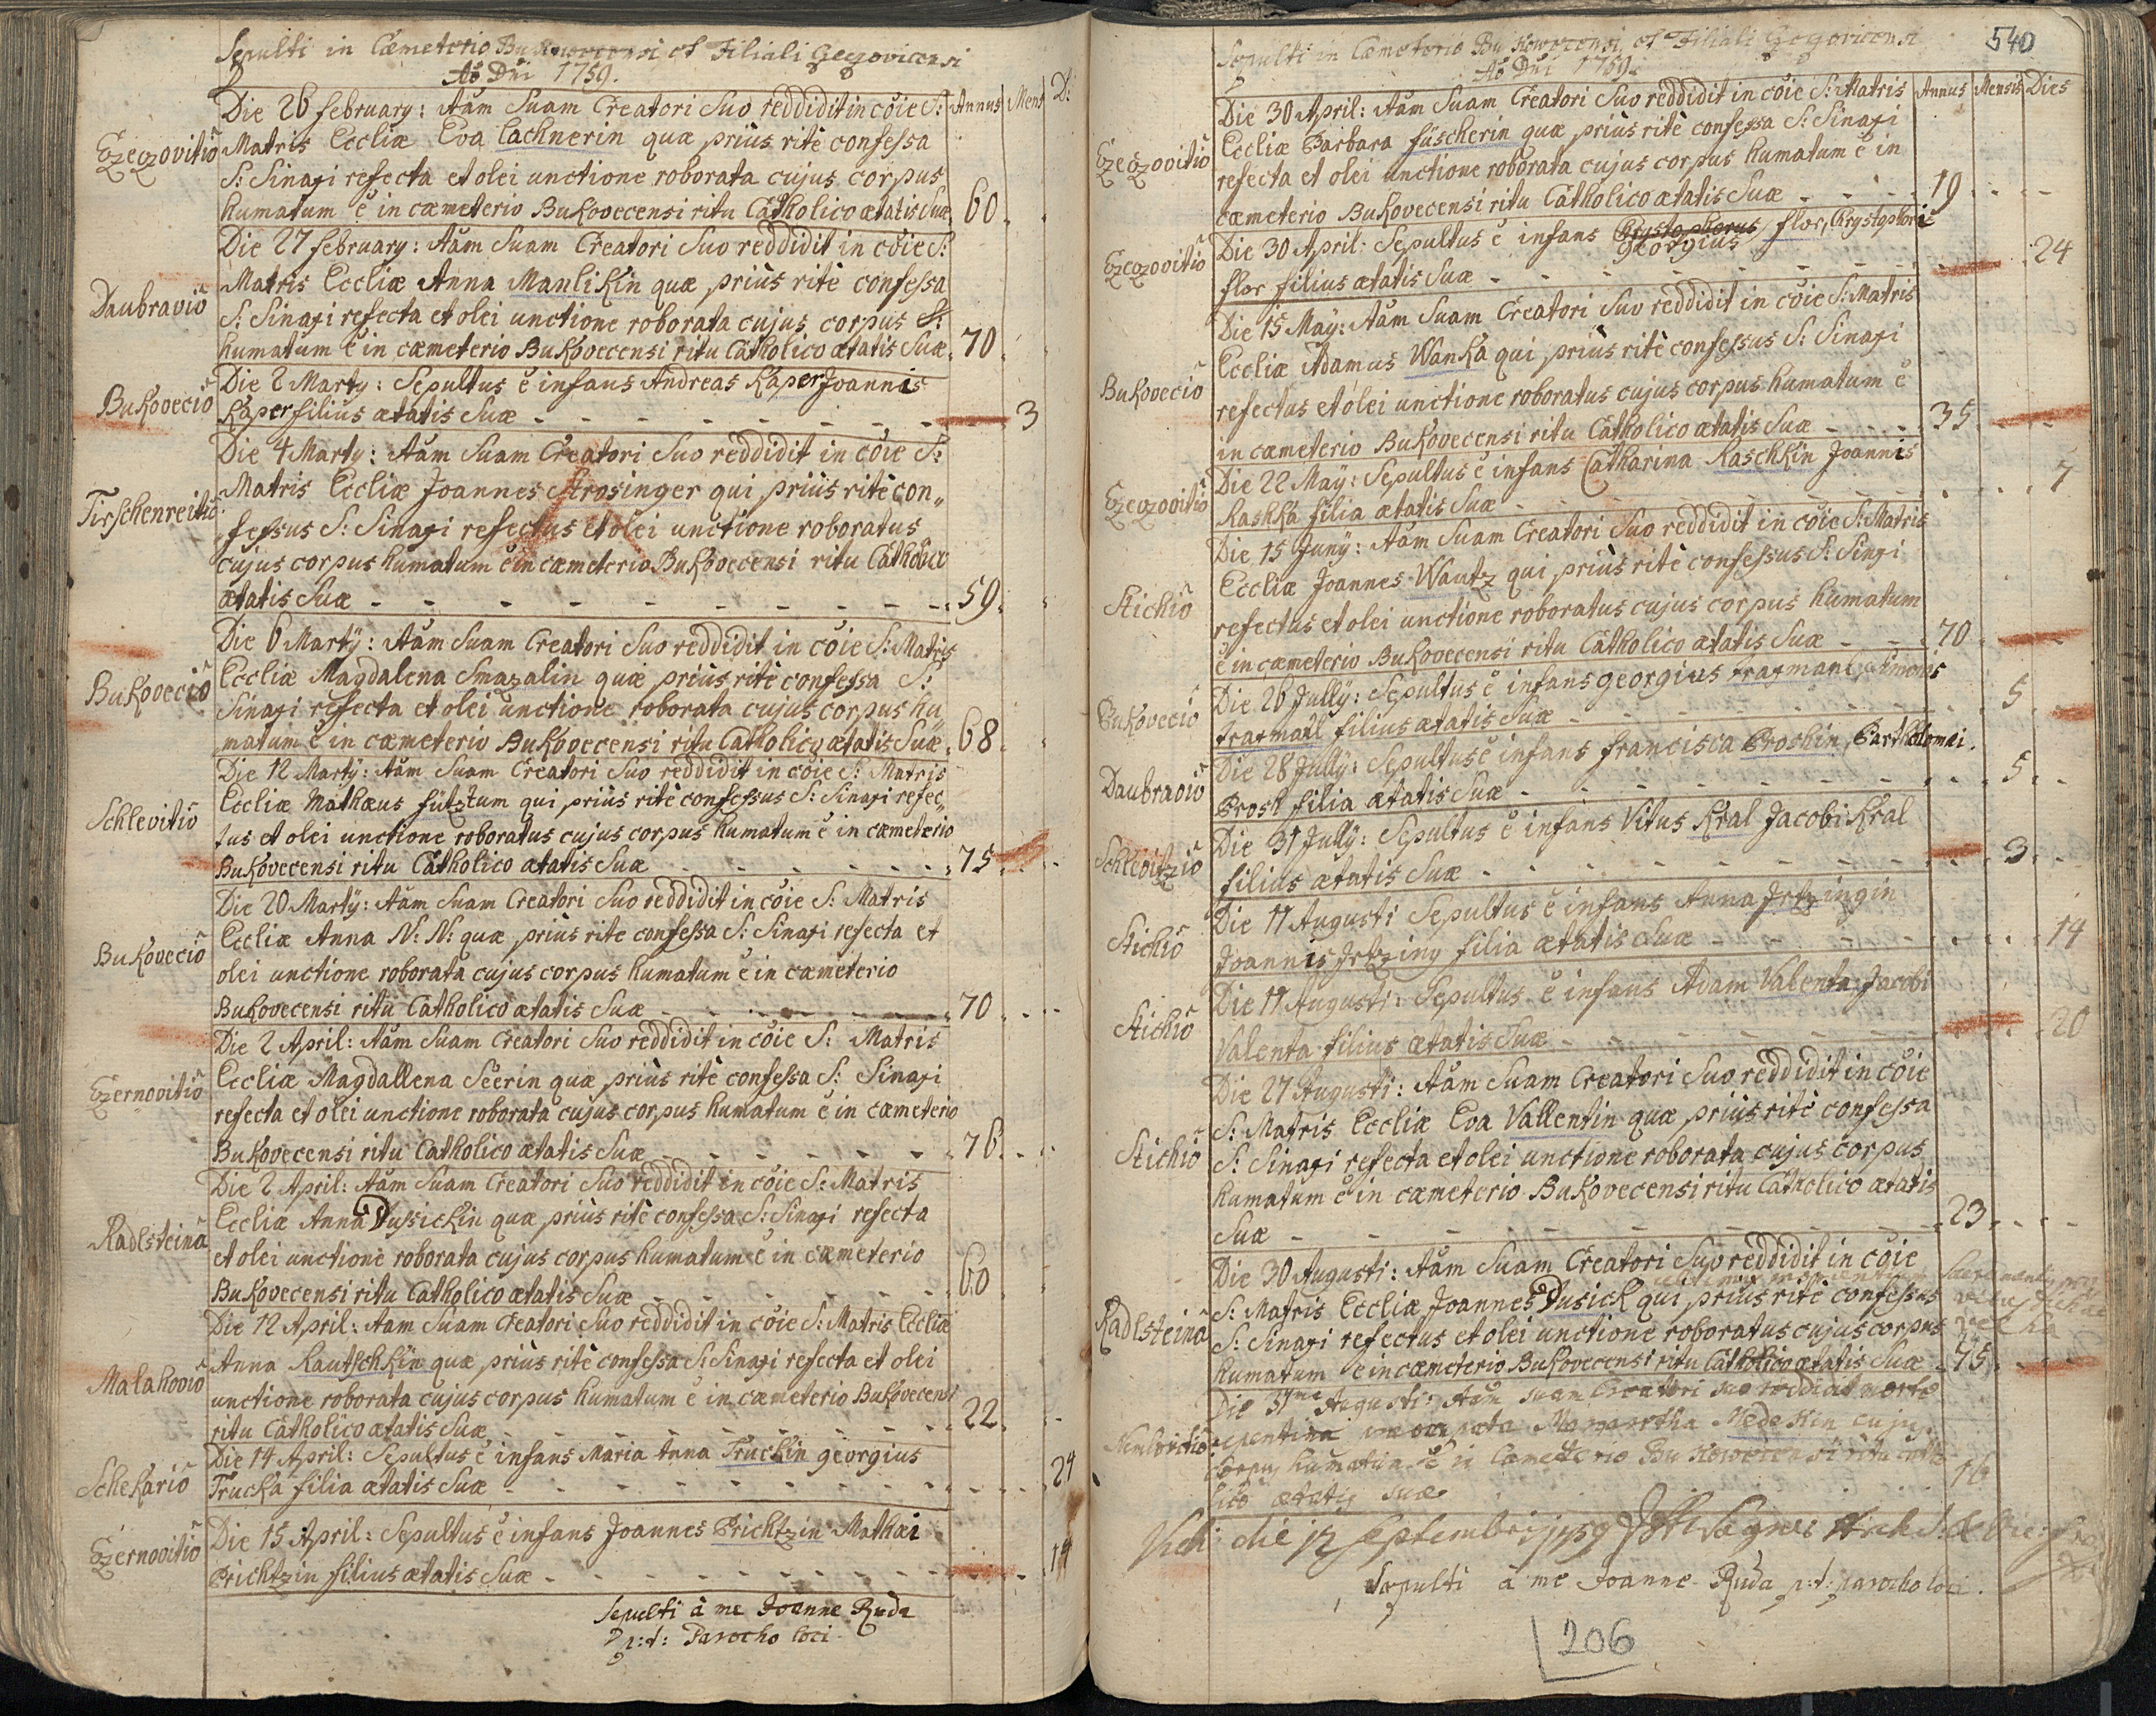 Sepulti in Cæmeterio Bukowecensi et Filiali Gezovicensi
Aõ Dni 1759.
Annus Mens D:
Die 26 february: Aãm Suam Creatori Suo reddidit in cõie S:
Ezezovitiõ Matris Eccliæ Eva Lachnerin quæ priùs ritè confessa
S: Sinaxi refecta et olei unctione roborata cujus corpus
humatum ẽ in cæmeterio Bukovecensi ritu Catholico ætatis Suæ 60
Die 27 february: Aãm Suam Creatori Suo reddidit in cõie S:
Daubraviõ Matris Eccliæ Anna Manlikin quæ priùs ritè confessa
S: Sinaxi refecta et olei unctione roborata cujus corpus
humatum ẽ in cæmeterio Bukovecensi ritu Catholico ætatis Suæ 70
Bukoveciõ Die 2 Marty: Sepultus ẽ infans Andreas Kaper Joannis
Kaper filius ætatis Suæ - - - 3
Die 4 Marty: Aãm Suam Creatori Suo reddidit in cõie S:
Tirschenreitiõ Matris Eccliæ Joannes Strosinger qui priùs ritè con„
fessus S: Sinaxi refectus et olei unctione roboratus
cujus corpus humatum ẽ in cæmeterio Bukovecensi ritu Catholico
ætatis Suæ - - - 59
Die 6 Martÿ: Aãm Suam Creatori Suo reddidit in cõie S: Matris
Bukoveciõ Eccliæ Magdalena Smazalin quæ priùs ritè confessa S:
Sinaxi refecta et olei unctione roborata cujus corpus hu„
matum ẽ in cæmeterio Bukovecensi ritu Catholico ætatis Suæ 68
Die 12 Martÿ: Aãm Suam Creatori Suo reddidit in cõie S: Matris
Schlevitiõ Eccliæ Mathæus fütztum qui priùs ritè confessus S: Sinaxi refec„
tus et olei unctione roboratus cujus corpus humatum ẽ in cæmeterio
Bukovecensi ritu Catholico ætatis Suæ - - - 75
Die 20 Martÿ: Aãm Suam Creatori Suo reddidit in cõie S: Matris
Bukoveciõ Eccliæ Anna N: N: quæ priùs rite confessa S: Sinaxi refecta et
olei unctione roborata cujus corpus humatum ẽ in cæmeterio
Bukovecensi ritu Catholico ætatis Suæ - - - 70
Die 2 April: Aãm Suam Creatori Suo reddidit in cõie S: Matris
Ezernovitiõ Eccliæ Magdallena Seerin quæ priùs ritè confessa S: Sinaxi
refecta et olei unctione roborata cujus corpus humatum ẽ in cæmeterio
Bukovecensi ritu Catholico ætatis Suæ - - - 76
Die 2 April: Aãm Suam Creatori Suo reddidit in cõie S: Matris
Radlsteinã Eccliæ Anna Dussickin quæ priùs ritè confessa S: Sinaxi refecta
et olei unctione roborata cujus corpus humatum ẽ in cæmeterio
Bukovecensi ritu Catholico ætatis Suæ - - - 60
Die 12 April: Aam Suam Creatori Suo reddidit in cõie S: Matris Eccliæ
Malahoviõ Anna Kautschkin quæ priùs ritè confessa S: Sinaxi refecta et olei
unctione roborata cujus corpus humatum ẽ in cæmeterio Bukovecensi
ritu Catholico ætatis Suæ - - - 22
Die 14 April: Sepultus ẽ infans Maria Anna Truckin georgius
Schekariõ Trucka filia ætatis Suæ - - - 24
Ezernovitiõ Die 15 April: Sepultus ẽ infans Joannes Prichtzin Mathæi
Prichtzin filius ætatis Suæ - - - 14
Sepulti à me Joanne Ruda
p:t: Parocho loci
540
Sepulti in Cæmeterio Bukowecensi et Filiali Gezovicensi
Aõ Dni 1759.
Annus Mensis Dies
Die 30 April: Aãm Suam Creatori Suo reddidit in cõie S: Matris
Ezezovitiõ Eccliæ Barbara füscherin quæ priùs ritè confessa S: Sinaxi
refecta et olei unctione roborata cujus corpus humatum ẽ in
cæmeterio Bukovecensi ritu Catholico ætatis Suæ - - - 19
Ezezovitiõ Die 30 April: Sepultus ẽ infans Chrystophorus georgius flor, Chrystophori
flor filius ætatis Suæ - - - 24
Die 15 Maÿ: Aãm Suam Creatori Suo reddidit in cõie S: Matris
Bukoveciõ Eccliæ Adamus Wanka qui priùs ritè confessus S: Sinaxi
refectus et olei unctione roboratus cujus corpus humatum ẽ
in cæmeterio Bukovecensi ritu Catholico ætatis Suæ - - - 35
Ezezovitiõ Die 22 Maÿ: Sepultus ẽ infans Catharina Raschkin Joannis
Rashka filia ætatis Suæ - - - 7
Die 15 Junÿ: Aãm Suam Creatori Suo reddidit in cõie S: Matris
Stichiõ Eccliæ Joannes Wautz qui priùs ritè confessus S: Sinaxi
refectus et olei unctione roboratus cujus corpus humatum
ẽ in cæmeterio Bukovecensi ritu Catholico ætatis Suæ - - - 70
Bukoveciõ Die 26 Jullÿ: Sepultus ẽ infans georgius traxmanl, Simonis
traxmanl filius ætatis Suæ - - - 5
Daubraviõ Die 28 Jullÿ: Sepultus ẽ infans francisca Proshin, Bartholomæi
Prosh filia ætatis Suæ - - - 5
Schlevitziõ Die 31 Jullÿ: Sepultus ẽ infans Vitus Kral Jacobi Kral
filius ætatis Suæ - - - 3
Stichiõ Die 11 Augusti Sepultus ẽ infans Anna Jrtzingin
Joannis Jrtzing filia ætatis Suæ - - - 14
Stichiõ Die 17 Augusti: Sepultus ẽ infans Adam Valenta Jacobi
Valenta filius ætatis Suæ - - - 20
Die 27 Augusti: Aãm Suam Creatori Suo reddidit in cõie
Stichiõ S: Matris Eccliæ Eva Vallentin quæ priùs ritè confessa
S: Sinaxi refecta et olei unctione roborata cujus corpus
humatum ẽ in cæmeterio Bukovecensi ritu Catholico ætatis
Suæ - - - 23
Die 30 Augusti: Aãm Suam Creatori Suo reddidit in cõie
Radlsteinã S: Matris Eccliæ Joannes Dusick qui priùs ritè confessus
S: Sinaxi refectus et olei unctione roboratus cujus corpus
humatum ẽ in cæmeterio Bukovecensi ritu Catholico ætatis Suæ 75
Die 31 Augusti: Aãm suam Creatori suo reddidit morte
repentina Margartha Nedekin cujus
Corpus humatum ẽ in Cæmetterio Bukowecensi ritu Catho
lico ætatis suæ 16
Vidi die 12 Septembris 1759
Sepulti à me Joanne Ruda p:t: parocho loci.
206